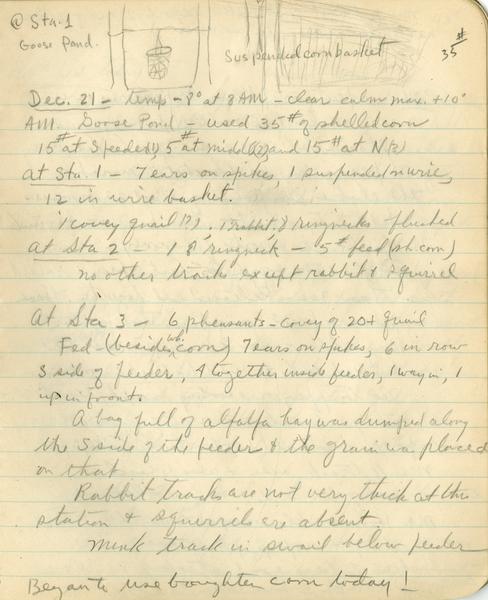 @ Sta. 1
Goose Pond.
Suspended corn basket
35#
Dec. 21 - temp - 8° at 8 AM - clear calm max. +10°
AM. Goose Pond - used 35# of shelled corn
15# at S feeder(1) 5# at middl(2) and 15# at N(3)
At Sta. 1 - 7 ears on spikes, 1 suspended on wire,
12 in wire basket.
1 covey quail (?), 1 rabbit, 8 ringnecks flushed
at Sta 2 - 1 ringneck - 5# feed (sh. corn)
no other tracks except rabbit & squirrel
At Sta 3 - 6 pheasants - covey of 20+ quail
Fed (besides corn) 7 ears on spikes, 6 in row
S side of feeder, 4 together inside feeder, 1 way in, 1
up in front.
A bag full of alfalfa hay was dumped along
the S side of the feeder & the grain was placed
on that
Rabbit tracks are not very thick at this
station & squirrels are absent.
Mink track in swail below feeder
Began to use boughten corn today!